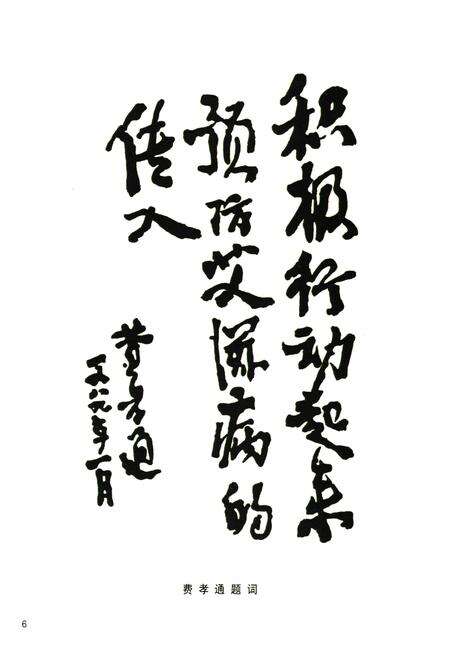 积极行动起来
预防艾滋病的
传入
费孝通
一九八九年一月
费孝通题词
6